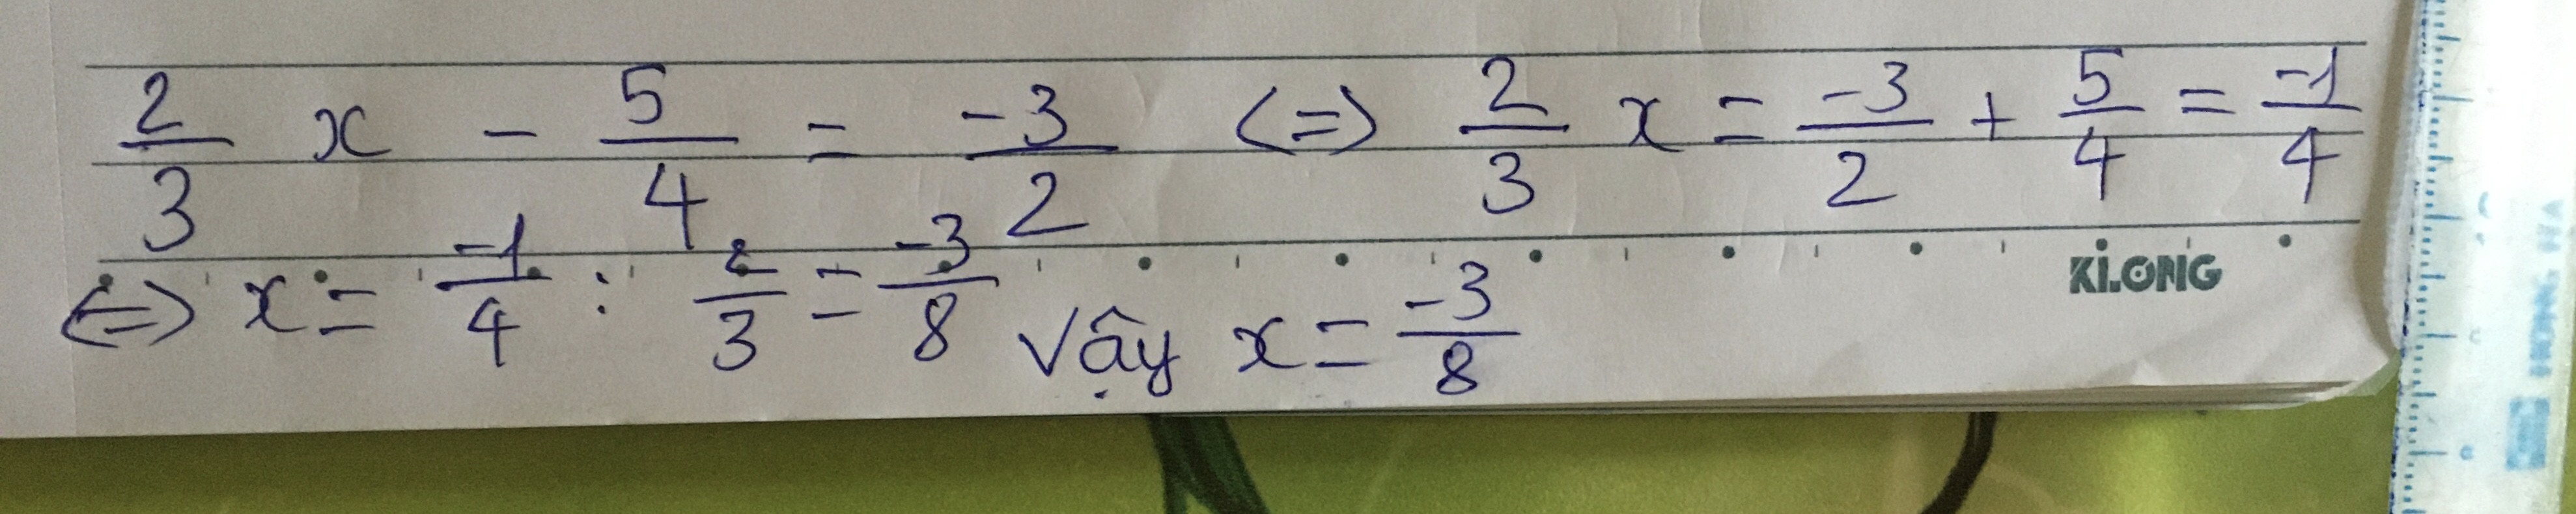 2/3 x - 5/4 = -3/2 <=> 2/3 x = -3/2 + 5/4 = -1/4
<=> x = -1/4 : 2/3 = -3/8 Vậy x = -3/8
KLONG